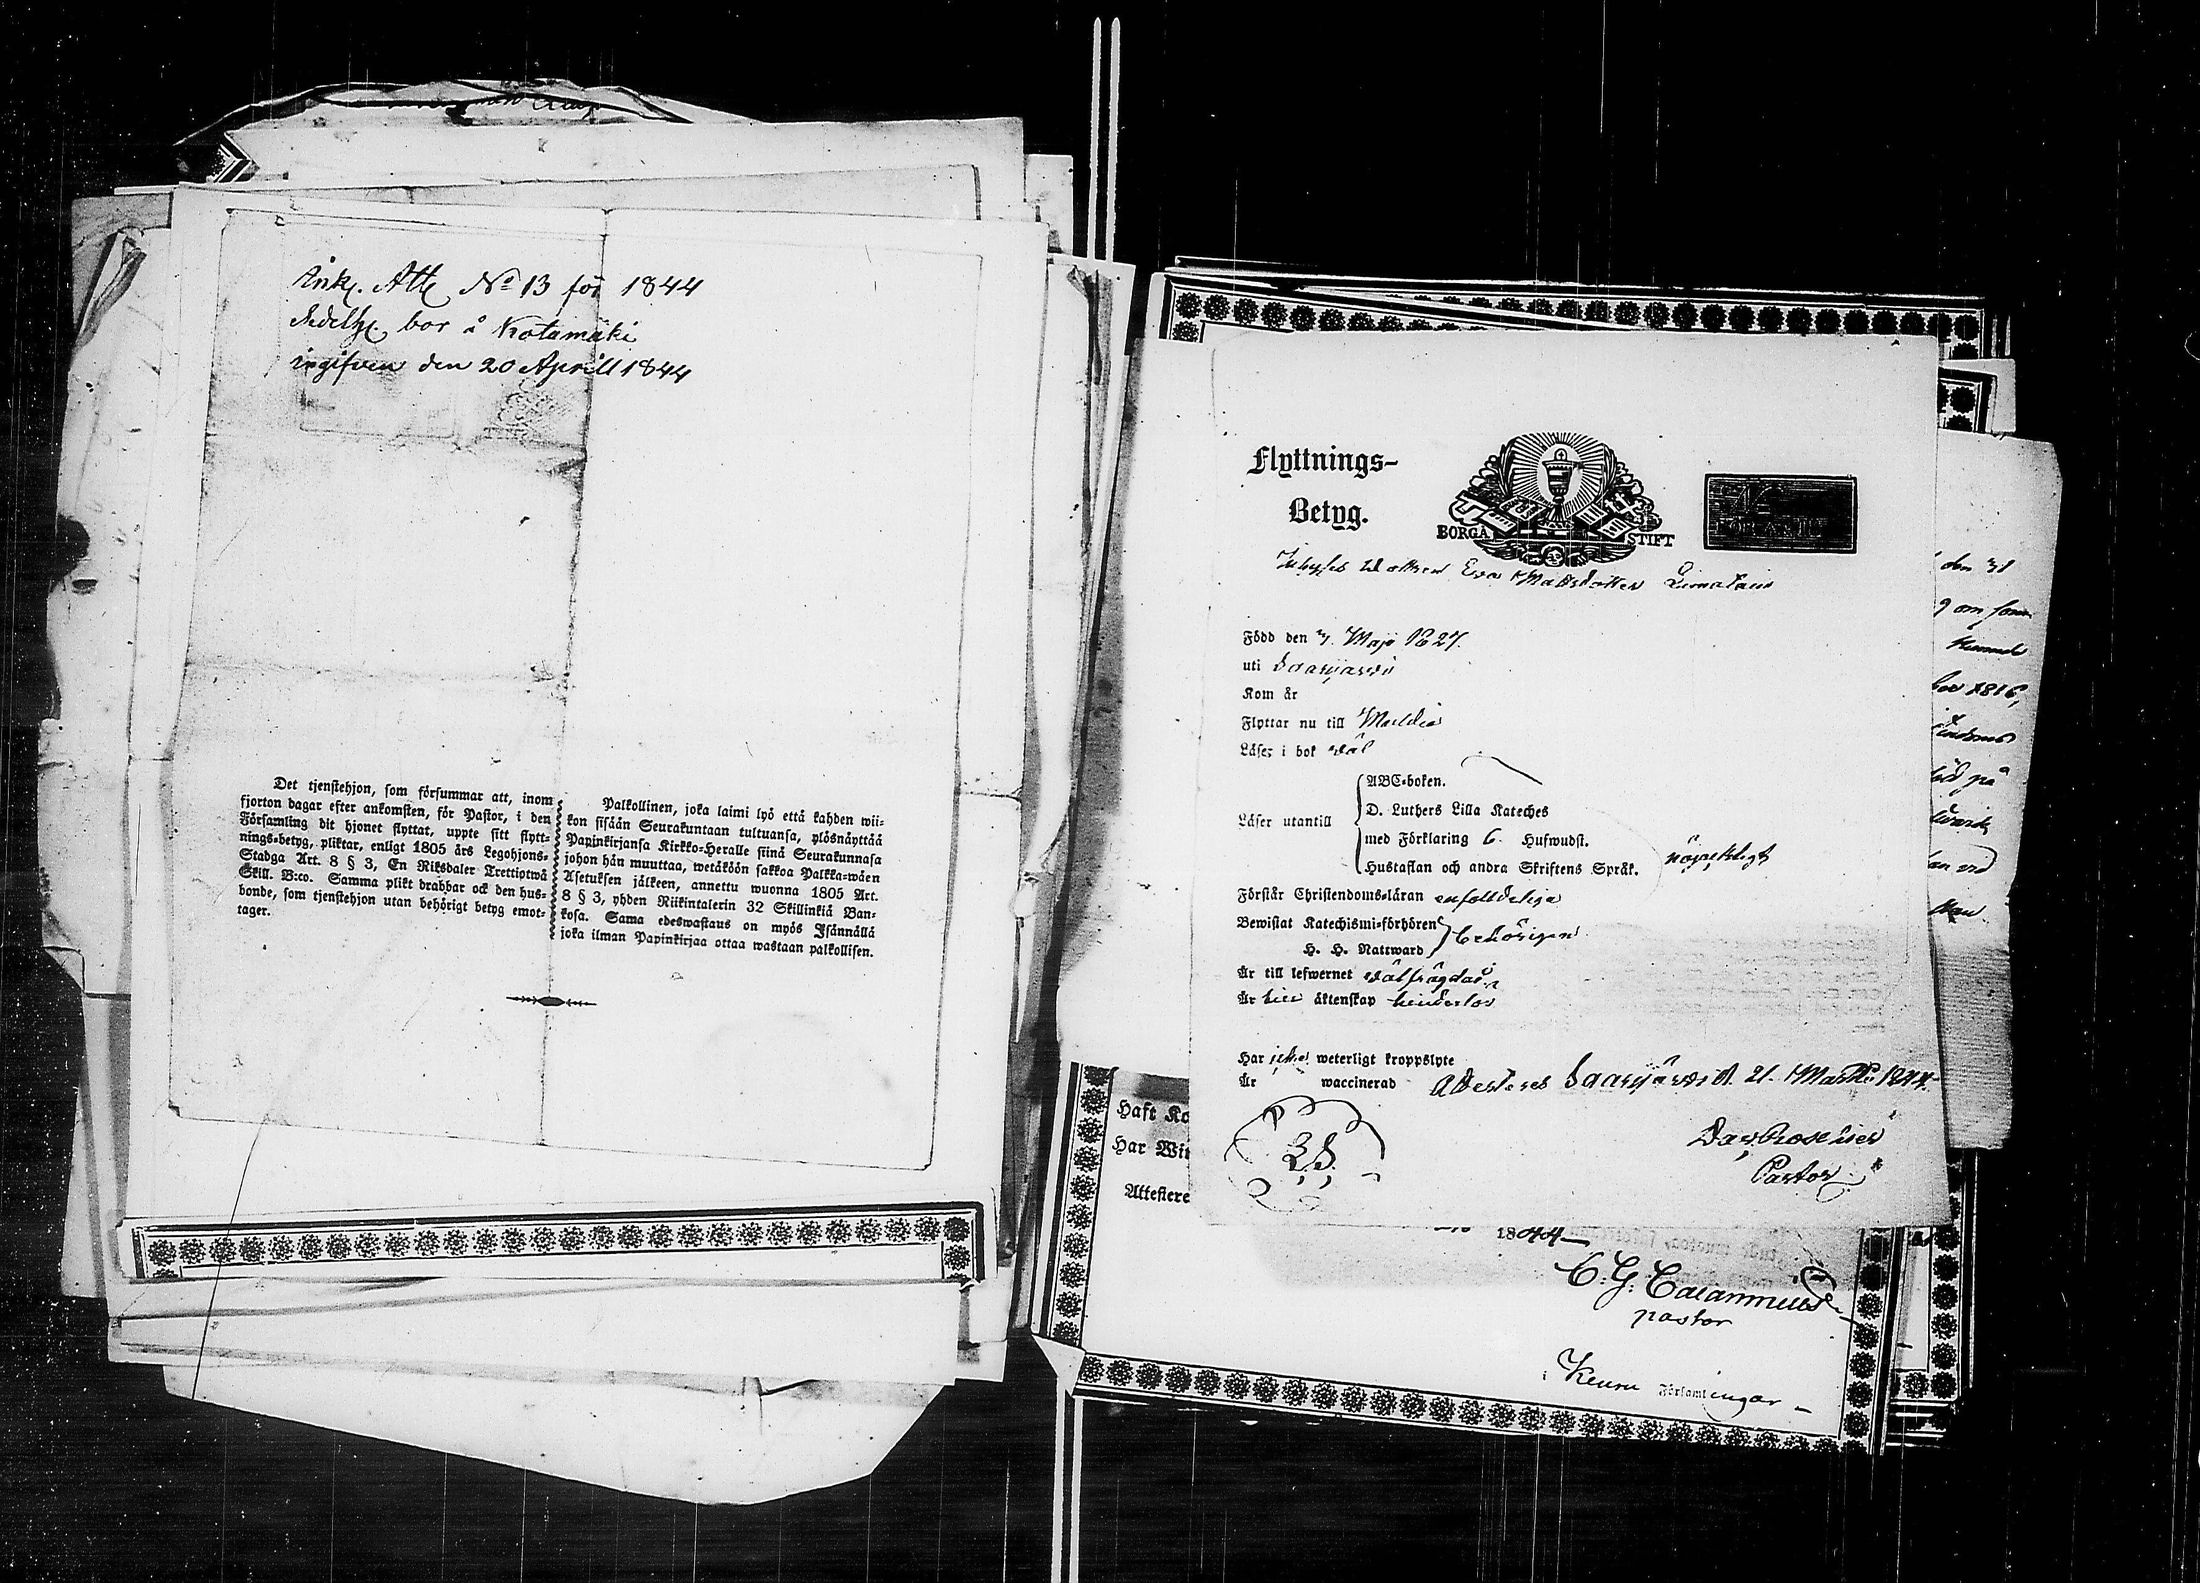 Ank. Att. No 13 för 1844
bor å Kotamäki
ingifven den 20 April 1844
Det tjenstehjon, som försummar att, inom
fjorton dagar efter ankomsten, för Pastor, i den
Församling dit hjonet flyttat, uppte sitt flytt-
nings-betyg, pliktar, enligt 1805 års Legohjons-
Stadga Art. 8 § 3, En Riksdaler Trettiotwå
Skill. B:co. Samma plikt drabbar ock den hus-
bonde, som tjenstehjon utan behörigt betyg emot-
tager.
Palkollinen, joka laimi lyö että kahden wii-
kon sisään Seurakuntaan tultuansa, ylösnäyttää
Papinkirjansa Kirkko-Heralle siinä Seurakunnasa
johon hän muuttaa, wetäköön sakkoa Palkka-wäen
Asetuksen jälkeen, annettu wuonna 1805 Art.
8 § 3, yhden Riikintalerin 32 Skillinkiä Ban-
kosa. Sama edeswastaus on myös Isännällä
joka ilman Papinkirjaa ottaa wastaan palkollisen.
Flyttnings-
Betyg.
BORGÅ STIFT
Inhyses dottren Eva Mattsdotter Limatain
Född den 7. Maji 1827.
uti Saarijärvi
Kom år
Flyttar nu till Multia
Läser i bok wäl
Läser utantill
ABC-boken.
D. Luthers Lilla Kateches
med Förklaring 6. Hufwudst.
Hustaflan och andra Skriftens Språk.
nöjaktligt
Förstår Christendoms-läran enfaldeliga
Bewistat Katechismi-förhören
H. H. Nattward
behörigen
Är till lefwernet wälfrägdad
Är till äktenskap hinderlös
Har icke weterligt kroppslyte
Är waccinerad
Attesteres Saarijärvi d. 21. Martii 1844.
L.S.
Pastor
Haft
Har
Attestere
1844
C. G.
pastor
i Keuru Församlingar
den 31
om som
1816,
på